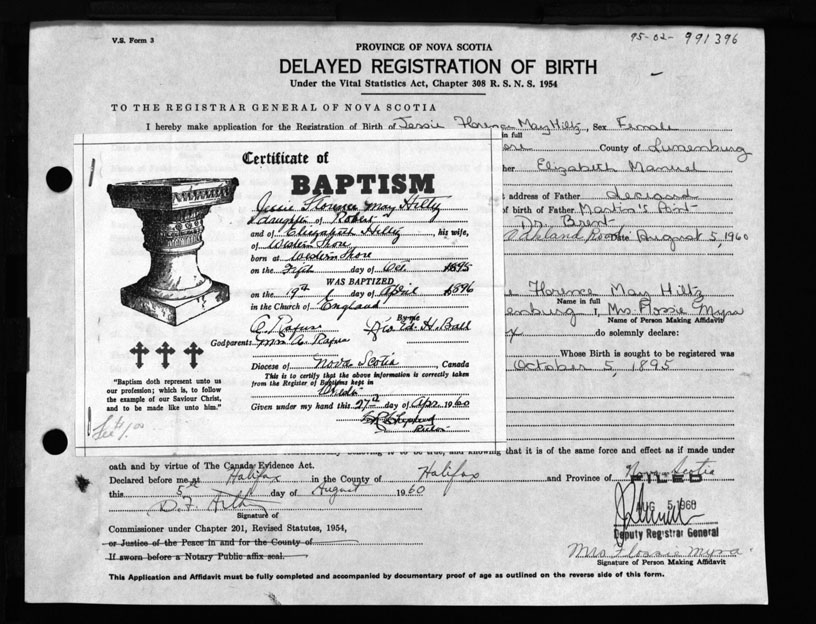 V.S. Form 3
95-02- 991396
PROVINCE OF NOVA SCOTIA
DELAYED REGISTRATION OF BIRTH
Under the Vital Statistics Act, Chapter 308 R. S. N. S. 1954
TO THE REGISTRAR GENERAL OF NOVA SCOTIA
I hereby make application for the Registration of Birth of Jessie Florence May Hiltz, Sex Female
in full
County of Lunenburg
Elizabeth Manuel
address of Father deceased
of birth of Father Martin's Point
Dr. Brint
Oakland Road Date August 5, 1960
Florence May Hiltz
Name in full
enburg I, Mrs Flossie Myra
Name of Person Making Affidavit
do solemnly declare:
Whose Birth is sought to be registered was
October 5, 1895
Certificate of
BAPTISM
Jessie Florence May Hiltz
daughter of Robert
and of Elizabeth Hiltz, his wife,
of Western Shore
born at Western Shore
on the Fifth day of Oct. 1895
WAS BAPTIZED
on the 19th day of April 1896
in the Church of England
By me
Geo. Ed. H. Ball
Godparents Mrs A.
Diocese of Nova Scotia, Canada
This is to certify that the above information is correctly taken
from the Register of Baptisms kept in
Given under my hand this 27th day of Apr. 1960
Rector
"Baptism doth represent unto us
our profession; which is, to follow
the example of our Saviour Christ,
and to be made like unto him."
Fee $1.00
to be true, and knowing that it is of the same force and effect as if made under
oath and by virtue of The Canada Evidence Act.
Declared before me at Halifax in the County of Halifax and Province of Nova Scotia
this 5th day of August 1960
FILED
AUG 5 1960
D. F.
Signature of
Deputy Registrar General
Commissioner under Chapter 201, Revised Statutes, 1954,
or Justice of the Peace in and for the County of
If sworn before a Notary Public affix seal.
Mrs Flossie Myra
Signature of Person Making Affidavit
This Application and Affidavit must be fully completed and accompanied by documentary proof of age as outlined on the reverse side of this form.